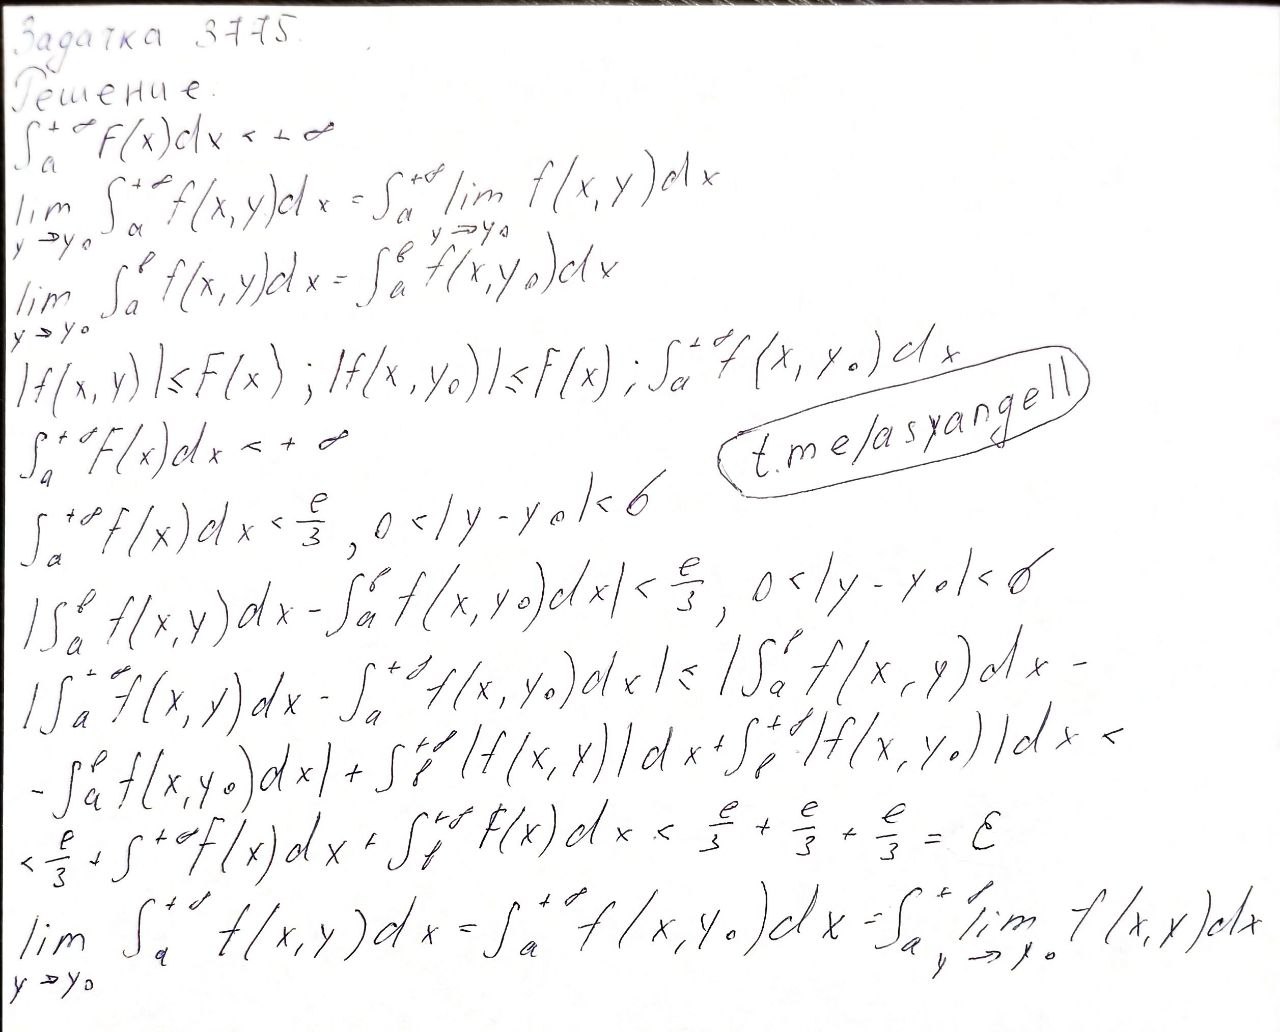 Задачка 3775.
Решение.
∫ₐ^{+∞} F(x)dx < +∞
lim_{y→y₀} ∫ₐ^{+∞} f(x,y)dx = ∫ₐ^{+∞} lim_{y→y₀} f(x,y)dx
lim_{y→y₀} ∫ₐ^{b} f(x,y)dx = ∫ₐ^{b} f(x,y₀)dx
|f(x,y)| ≤ F(x) ; |f(x,y₀)| ≤ F(x) ; ∫ₐ^{+∞} f(x,y₀)dx
t.me/asyangell
∫ₐ^{+∞} F(x)dx < +∞
∫ₐ^{+∞} F(x)dx < e/3 , 0 < |y - y₀| < б
|∫ₐ^{b} f(x,y)dx - ∫ₐ^{b} f(x,y₀)dx| < e/3 , 0 < |y - y₀| < б
|∫ₐ^{+∞} f(x,y)dx - ∫ₐ^{+∞} f(x,y₀)dx| ≤ |∫ₐ^{b} f(x,y)dx -
- ∫ₐ^{b} f(x,y₀)dx| + ∫_{b}^{+∞} |f(x,y)|dx + ∫_{b}^{+∞} |f(x,y₀)|dx <
< e/3 + ∫^{+∞} F(x)dx + ∫_{b}^{+∞} F(x)dx < e/3 + e/3 + e/3 = Ɛ
lim_{y→y₀} ∫ₐ^{+∞} f(x,y)dx = ∫ₐ^{+∞} f(x,y₀)dx = ∫ₐ^{+∞} lim_{y→y₀} f(x,y)dx